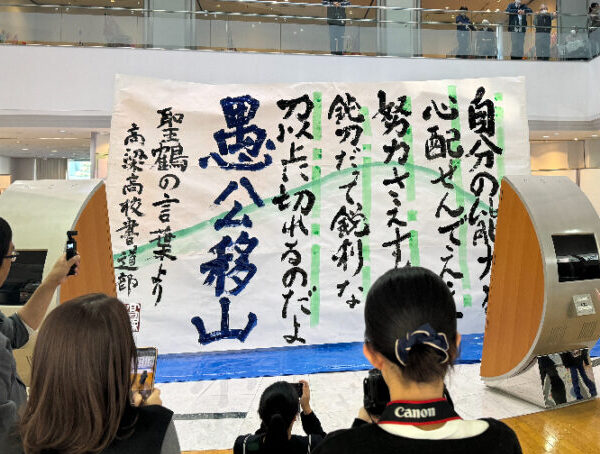 自分の能力を
心配せんでええ
努力さえす
鈍刀だって鋭利な
刀以上に切れるのだよ
愚公移山
聖鶴の言葉より
高梁高校書道部
Canon